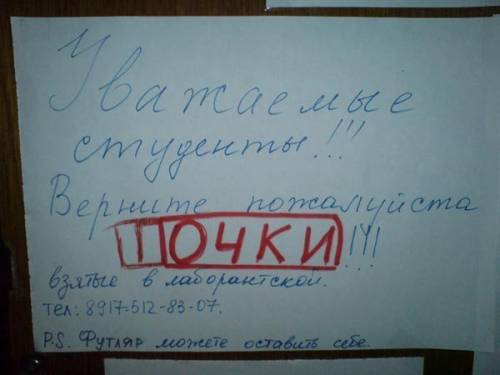 Уважаемые
студенты!!!
Верните пожалуйста
ТОЧКИ!!!
взятые в лаборантской.
тел: 8917-512-83-07.
P.S. Футляр можете оставить себе.